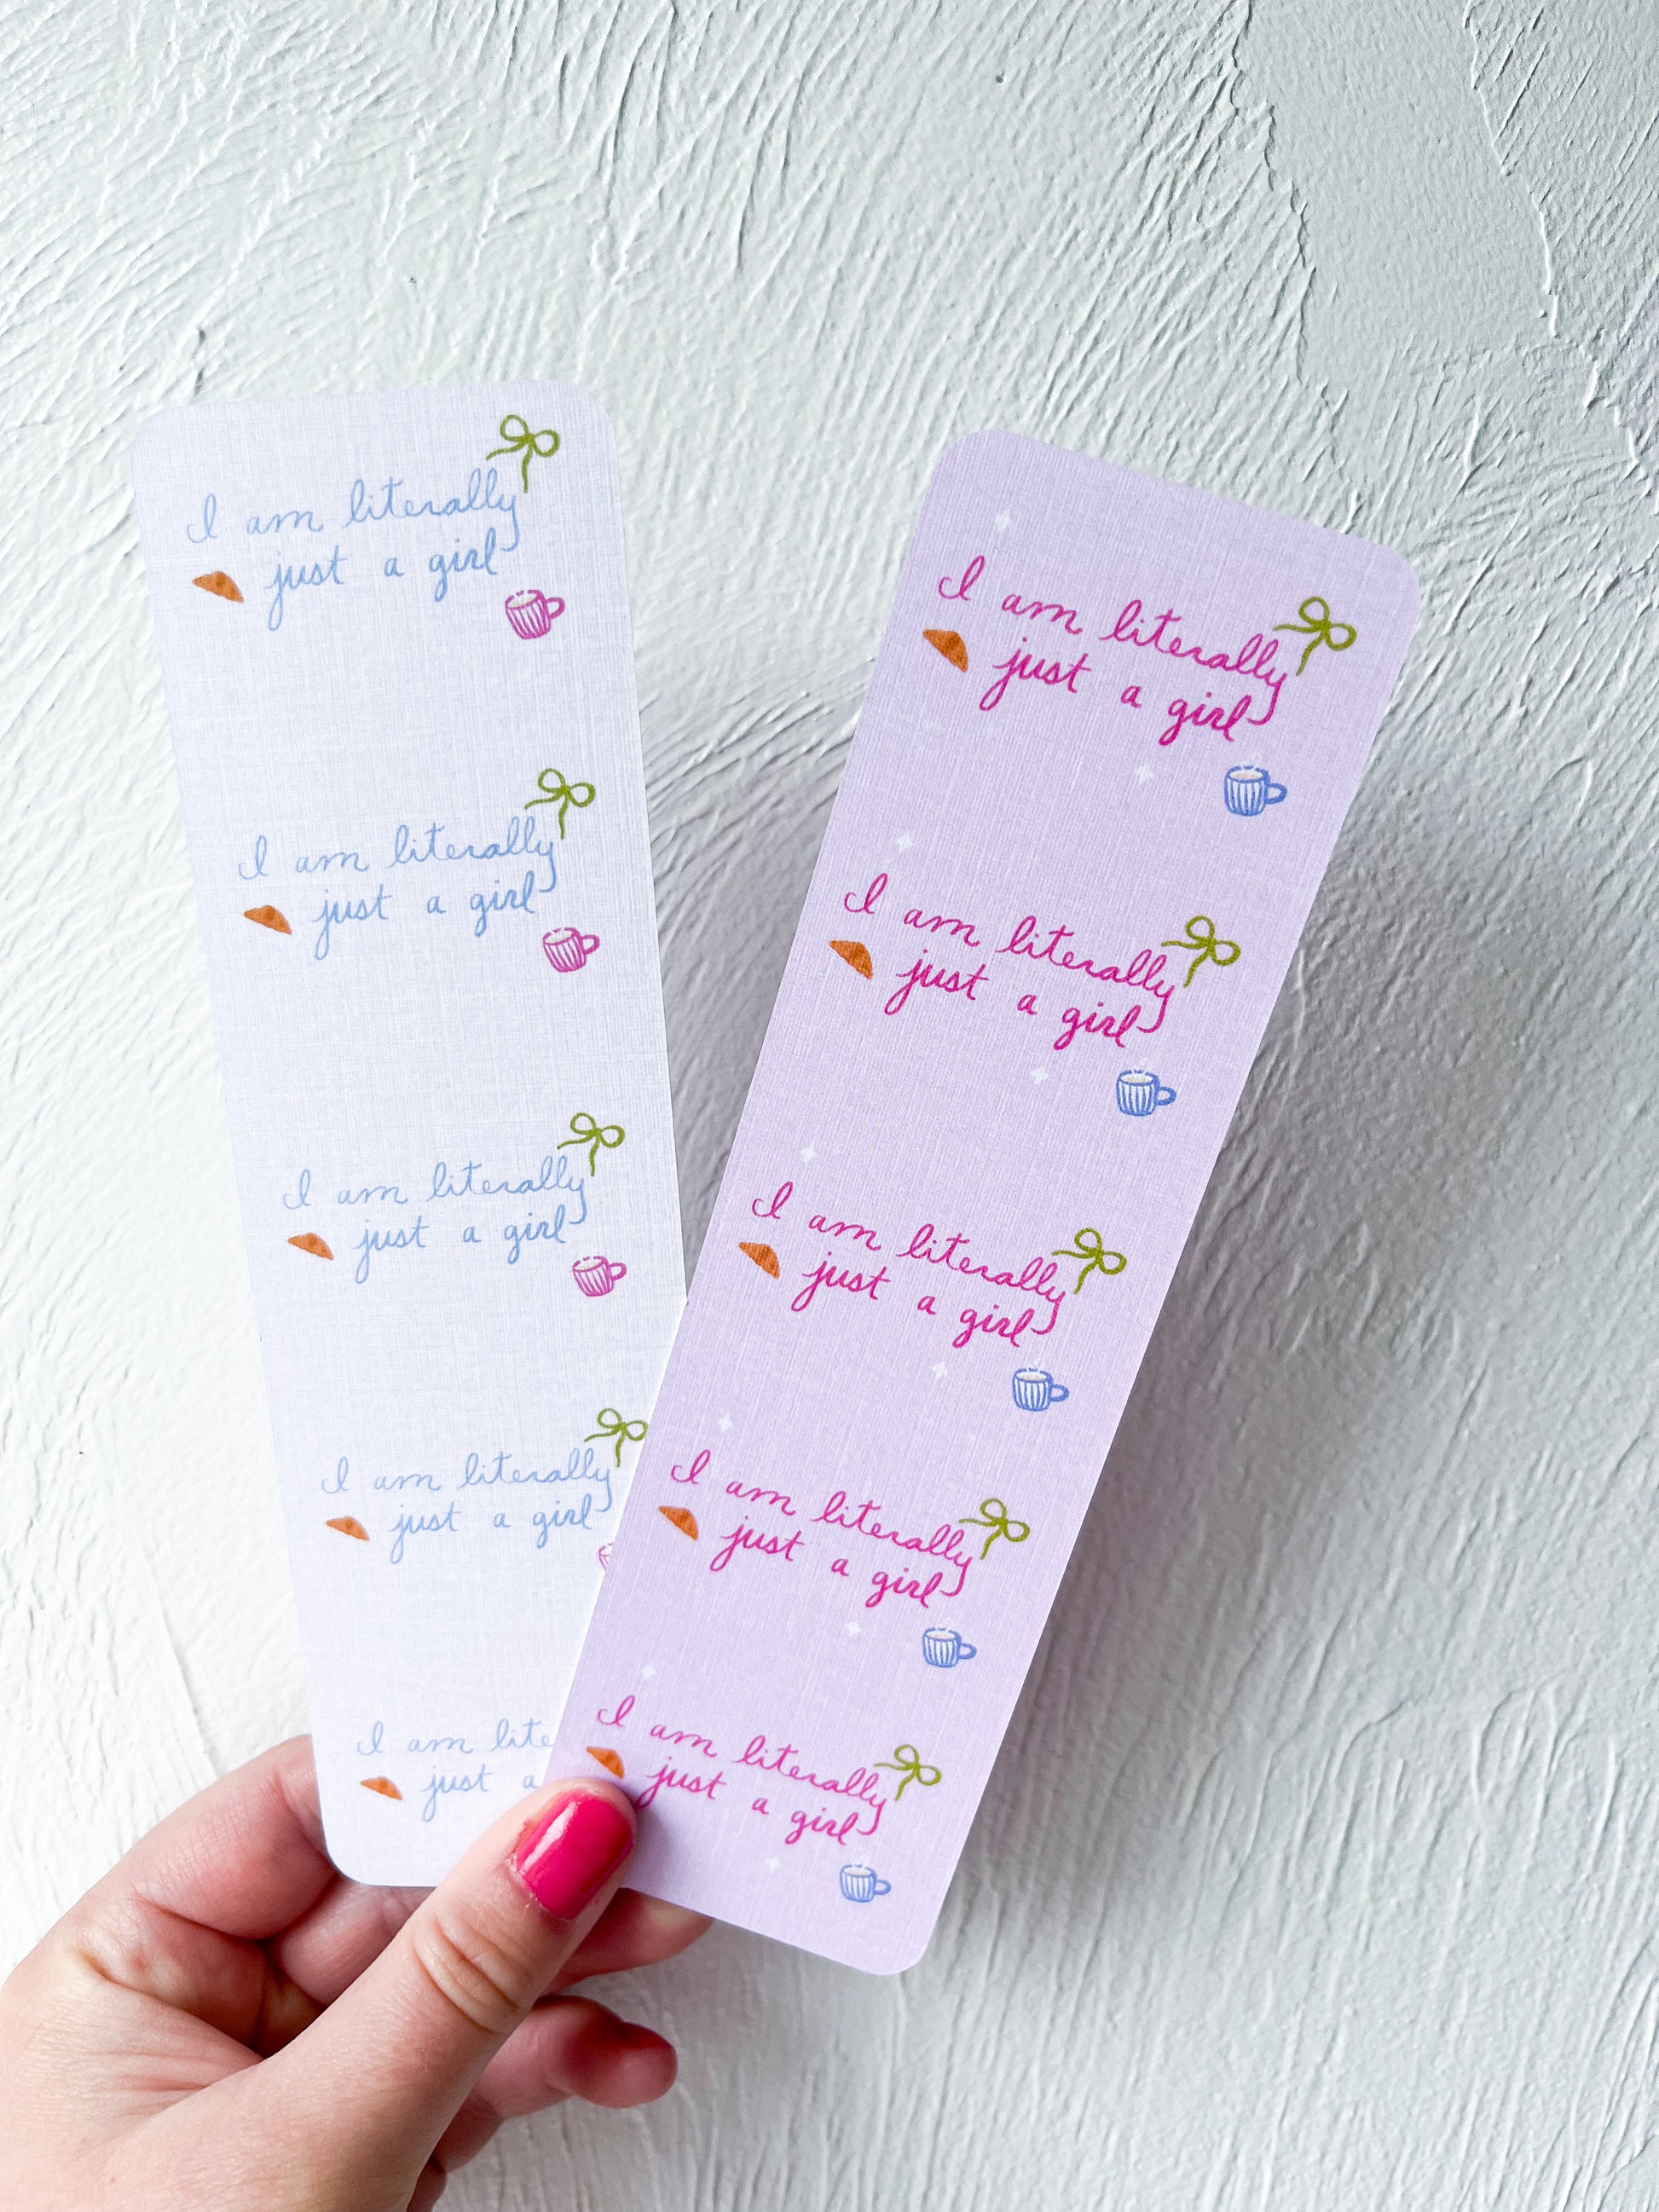 I am literally
just a girl
I am literally
just a girl
I am literally
just a girl
I am literally
just a girl
I am lite
just a
I am literally
just a girl
I am literally
just a girl
I am literally
just a girl
I am literally
just a girl
I am literally
just a girl